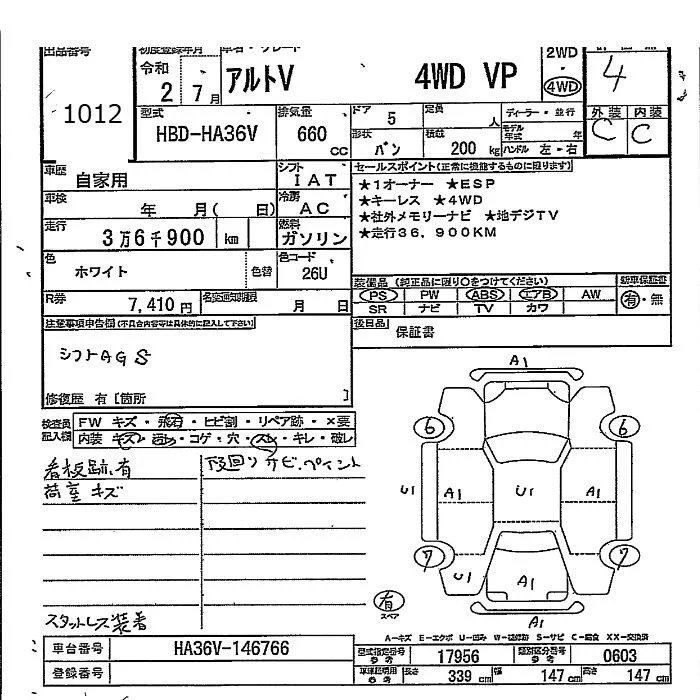 出品番号 初度登録年月 車名・グレード 2WD
1012 令和 2 7月 アルトV 4WD VP 4WD 4
型式 HBD-HA36V 排気量 660 CC ドア 5 定員 人 ディーラー・並行 外装 内装
形状 バン 積載 200 kg モデル年式 年 ハンドル 左・右 C C
車歴 自家用 シフト IAT セールスポイント(正常に機能するものに限ります)
車検 年 月( 日) 冷房 AC ★1オーナー ★ESP
★キーレス ★4WD
走行 3万6千900 km 燃料 ガソリン ★社外メモリーナビ ★地デジTV
★走行36,900KM
色 ホワイト 色替 色コード 26U
装備品(純正品に限り○をつけてください) 新車保証書
R券 7,410円 名変通知期限 月 日 PS PW ABS エアB AW 有・無
SR ナビ TV カワ
注意事項申告欄(不具合内容等は具体的に記入して下さい) 後日品 保証書
シフトAGS
修復歴 有 [箇所 ]
検査員記入欄 FW キズ・飛石・ヒビ割・リペア跡・×要
内装 キズ・汚れ・コゲ・穴・スレ・キレ・破レ
看板跡有 下回りサビ・ペイント
荷室キズ
スタットレス装着
A1
6 6
U1 A1 U1 A1
7 7
U1 A1
有 スペア A1
A-キズ E-エクボ U-凹み W-補修跡 S-サビ C-腐食 XX-交換済
車台番号 HA36V-146766 型式指定番号 参考 17956 類別区分番号 参考 0603
登録番号 車庫証明用 参考 長さ 339 cm 幅 147 cm 高さ 147 cm